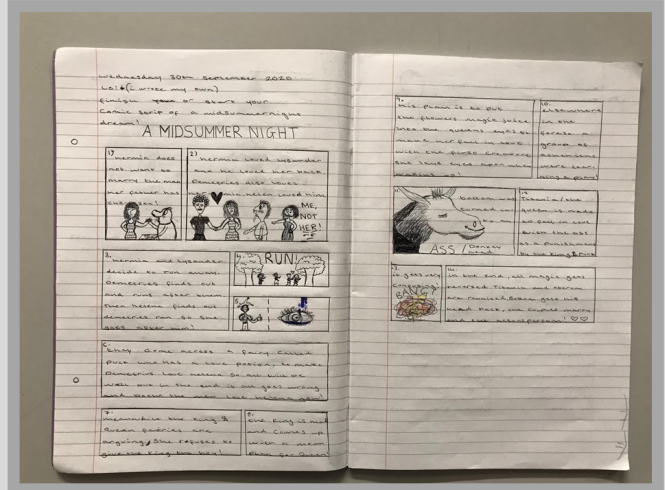 Wednesday 30th September 2020
LO: (i wrote my own)
finish your or start your
comic script of a midsummer night
dream!
A MIDSUMMER NIGHT
1) hermia does
not want to
marry the man
her father has
chosen!
2) hermia loved lysander
and he loved her back.
Demetrius also loves
hermia. helena loved him
ME,
NOT
HER!
3. hermia and lysander
decide to run away.
Demetrius finds out
and runs after them.
then helena finds out
demetrius ran so she
goes after him!
4.
RUN!
5.
6.
they come across a fairy called
puck who has a love potion, to make
Demetrius love helena so all will be
well but in the end it all goes wrong
and both the men love helena
7.
meanwhile the king &
Queen fairies are
arguing, she refuses to
give the king the boy!
8.
the king is mad
and comes up
with a mean
plan for Queen
9.
his plan is to put
the flowers magic juice
into the queens eyes to
make her fall in love
with the first creature
she lays eyes upon when
waking up!
10.
elsewhere
in the
forest a
group of
were
ing a play!
11.
bottom was
turned in
ASS / Donkey
head
12.
Titania / the
queen is made
to fall in love
with the ass
as a punishment
by the king & Puck
13.
it gets very
confusing!
BANG!
14.
in the end, all magic gets
reversed Titania and oberon
are reunited, Bottom gets his
head back, the couples marry
and the actors perform!